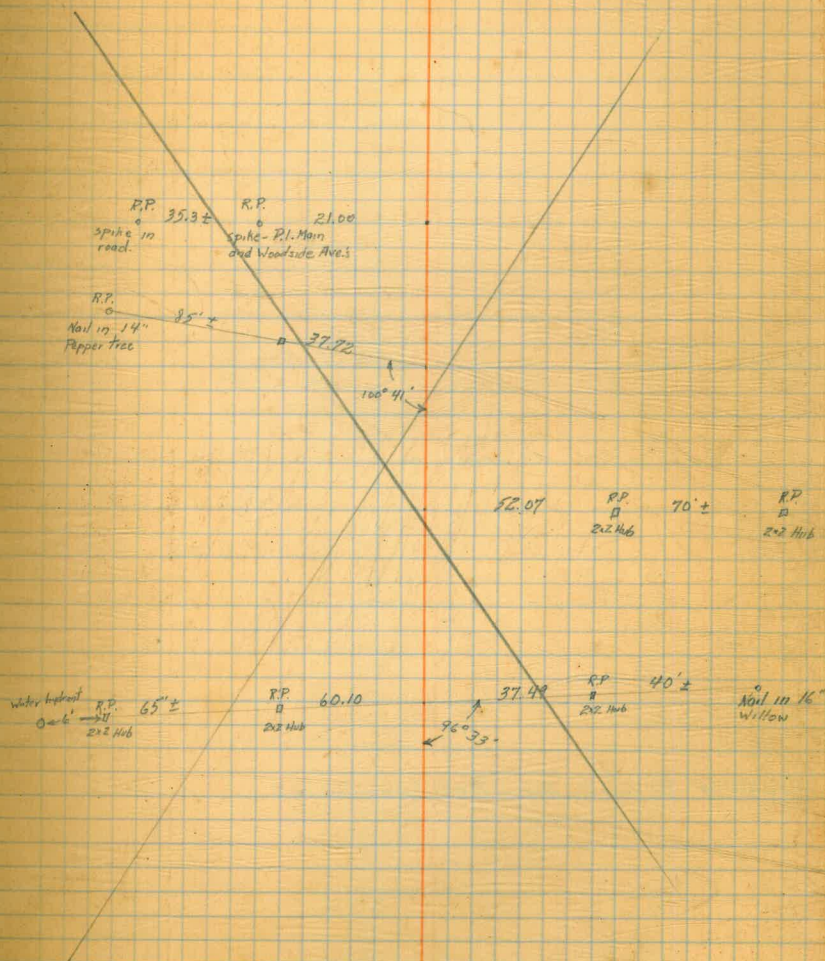 R.P. 35.3 ± R.P. 21.00
spike in spike - P.I. Main
road. and Woodside Ave.s
R.P.
85' ± 37.72
Nail in 14"
Pepper tree
100° 41'
52.07 R.P. 70' ± R.P.
2x2 Hub 2x2 Hub
water hydrant R.P. 65' ± R.P. 60.10 37.49 R.P. 40' ± Nail in 16"
6' 2x2 Hub 2x2 Hub 2x2 Hub Willow
96° 33'